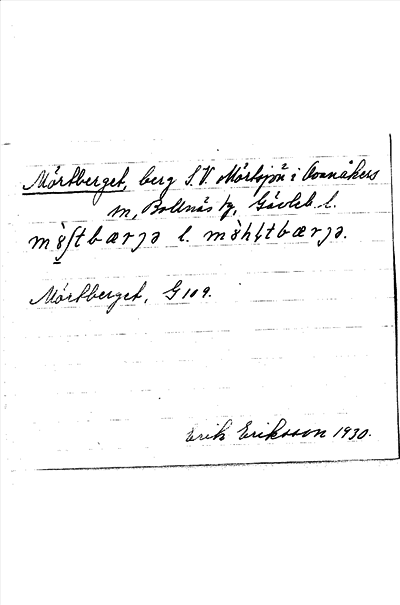 Mörtberget, berg S.V. Mörtsjön i Annåkers
m, Bollnäs tg, Gävleb. l.
bærɟə l. bærɟə.
Mörtberget, G 109.
Erik Eriksson 1930.